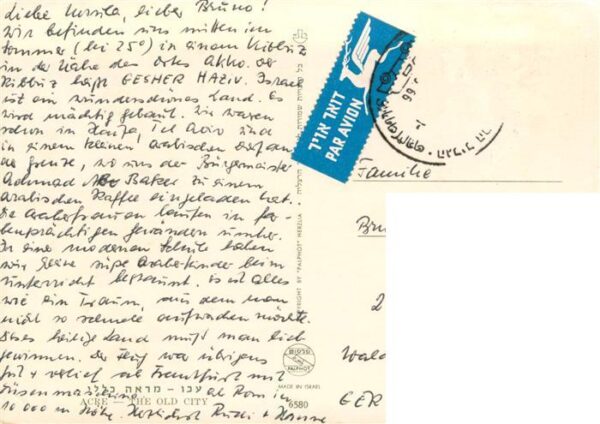 Liebe Ursula, lieber Bruno!
Wir befinden uns mitten im
Sommer (bei 25°) in einem Kibbuz
in der Nähe des Ortes Akko. Der
Kibbuz heißt GESHER HAZIV. Israel
ist ein wunderschönes Land. Es
wird mächtig gebaut. Wir waren
schon in Haifa, Tel Aviv und
in einem kleinen arabischen Dorf an
der Grenze, wo uns der Bürgermeister
Achmad Baker zu einem
arabischen Kaffee eingeladen hat.
Die Araberfrauen laufen in far-
benprächtigen Gewändern umher.
In einer modernen Schule haben
wir kleine süße Araberkinder beim
Unterricht bestaunt. Es ist alles
wie ein Traum, aus dem man
nicht so schnell aufwachen möchte.
Dieses heilige Land muß man lieb
gewinnen. Der Flug war übrigens
gut + verlief ab Frankfurt mit
Düsenmaschine ab Rom in
10 000 m Höhe. Herzlichst +
עכו - מראה כללי
ACRE — THE OLD CITY
COPYRIGHT BY "PALPHOT" HERZLIA
דואר אויר
PAR AVION
פלפוט
PALPHOT
MADE IN ISRAEL
6580
Familie
Bru
2
Wald
GER